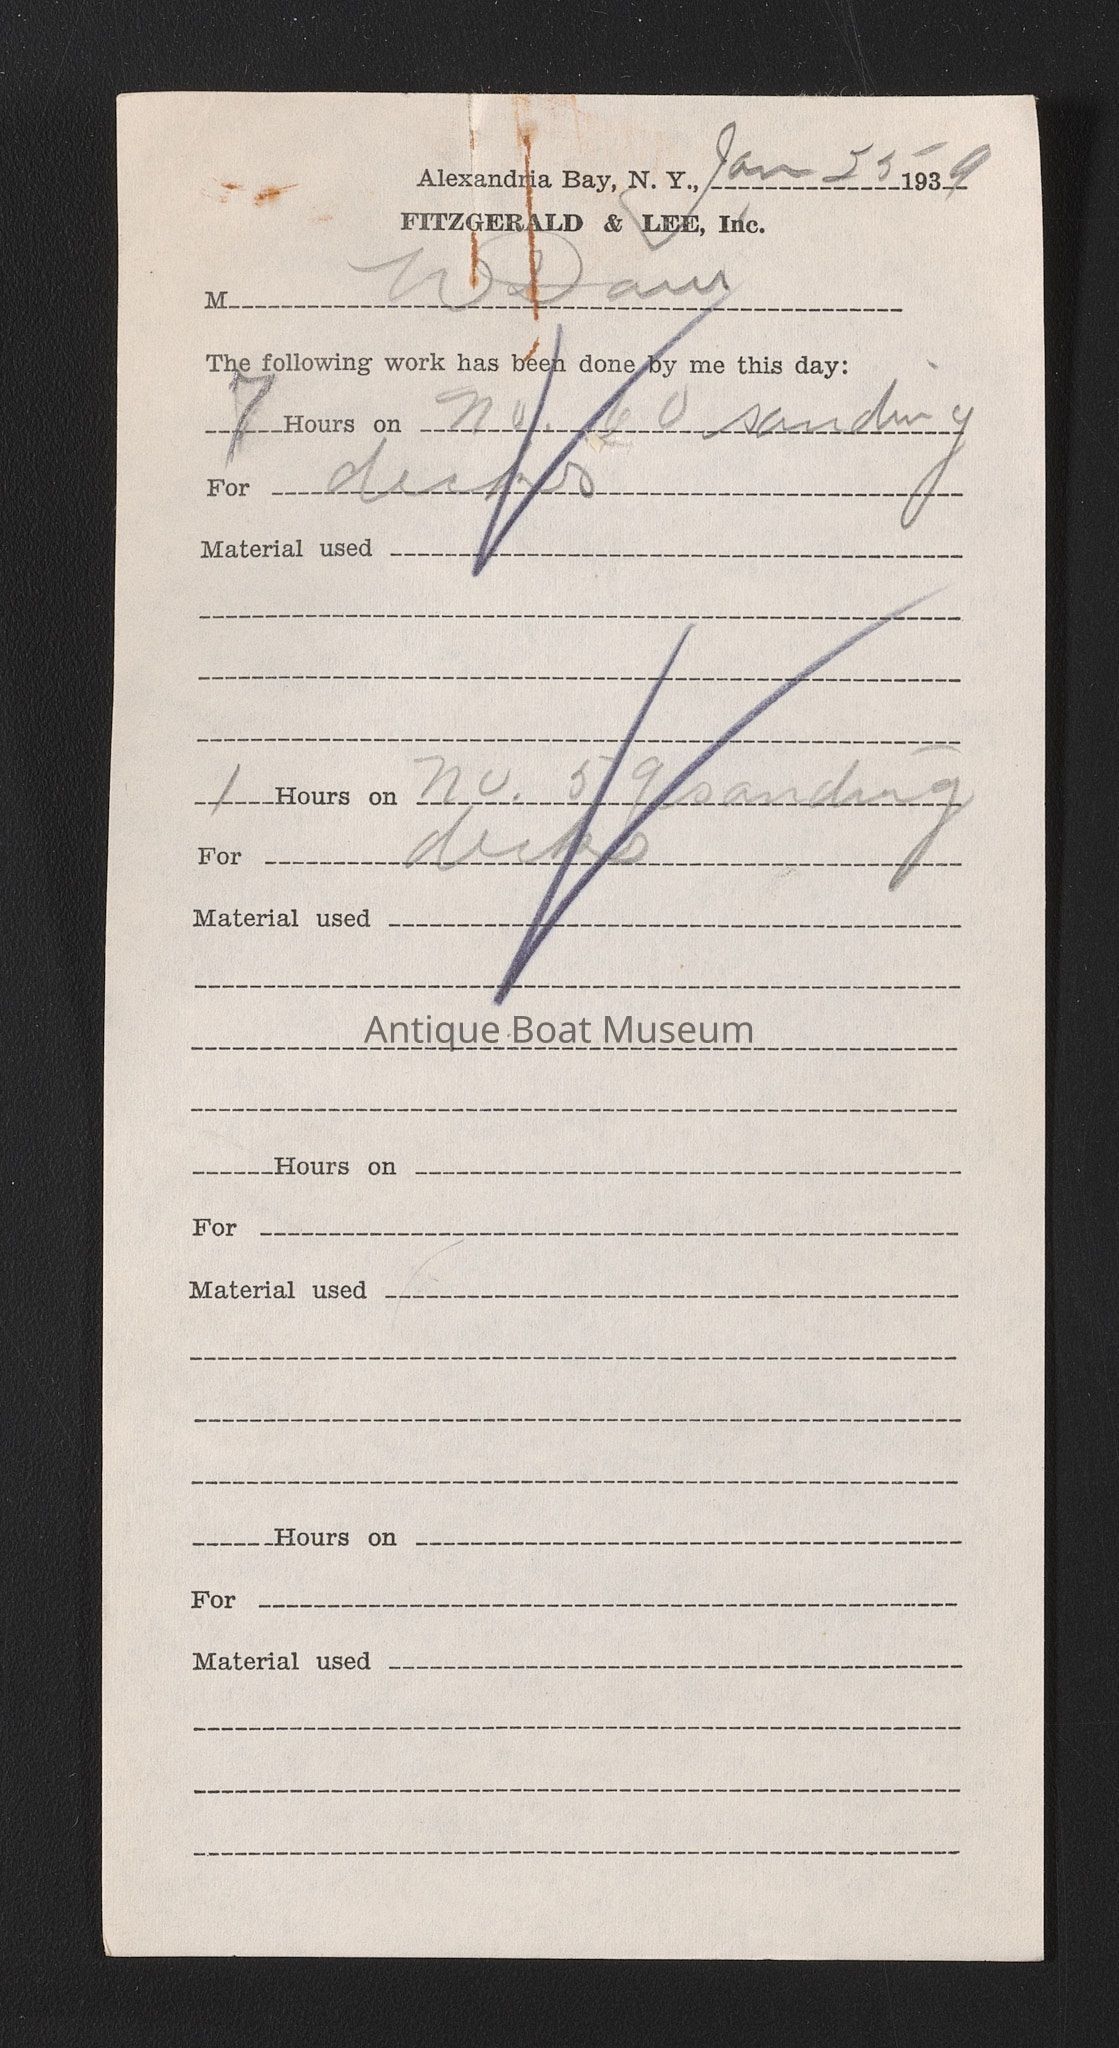 Alexandria Bay, N. Y., Jan 25 1939
FITZGERALD & LEE, Inc.
M W Daw
The following work has been done by me this day:
7 Hours on No. 60 sanding
For decks
Material used
1 Hours on No. 59 sanding
For decks
Material used
Antique Boat Museum
Hours on
For
Material used
Hours on
For
Material used